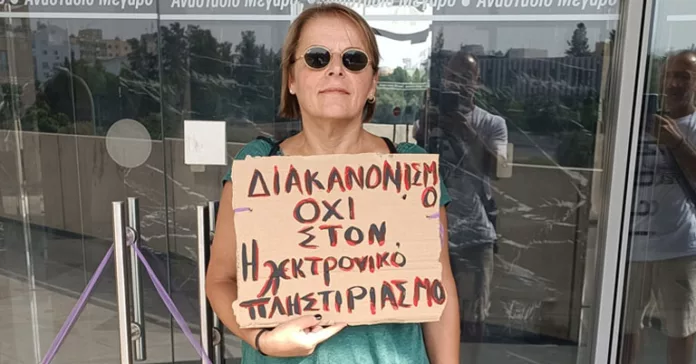 Αναστάσιο Μέγαρο
Αναστάσιο Μέγαρο
ΔΙΑΚΑΝΟΝΙΣΜ
Ο
ΟΧΙ
ΣΤΟΝ
ΗλεκτρονικόΠΛΗΣΤΙΡΙΑΣΜΟ